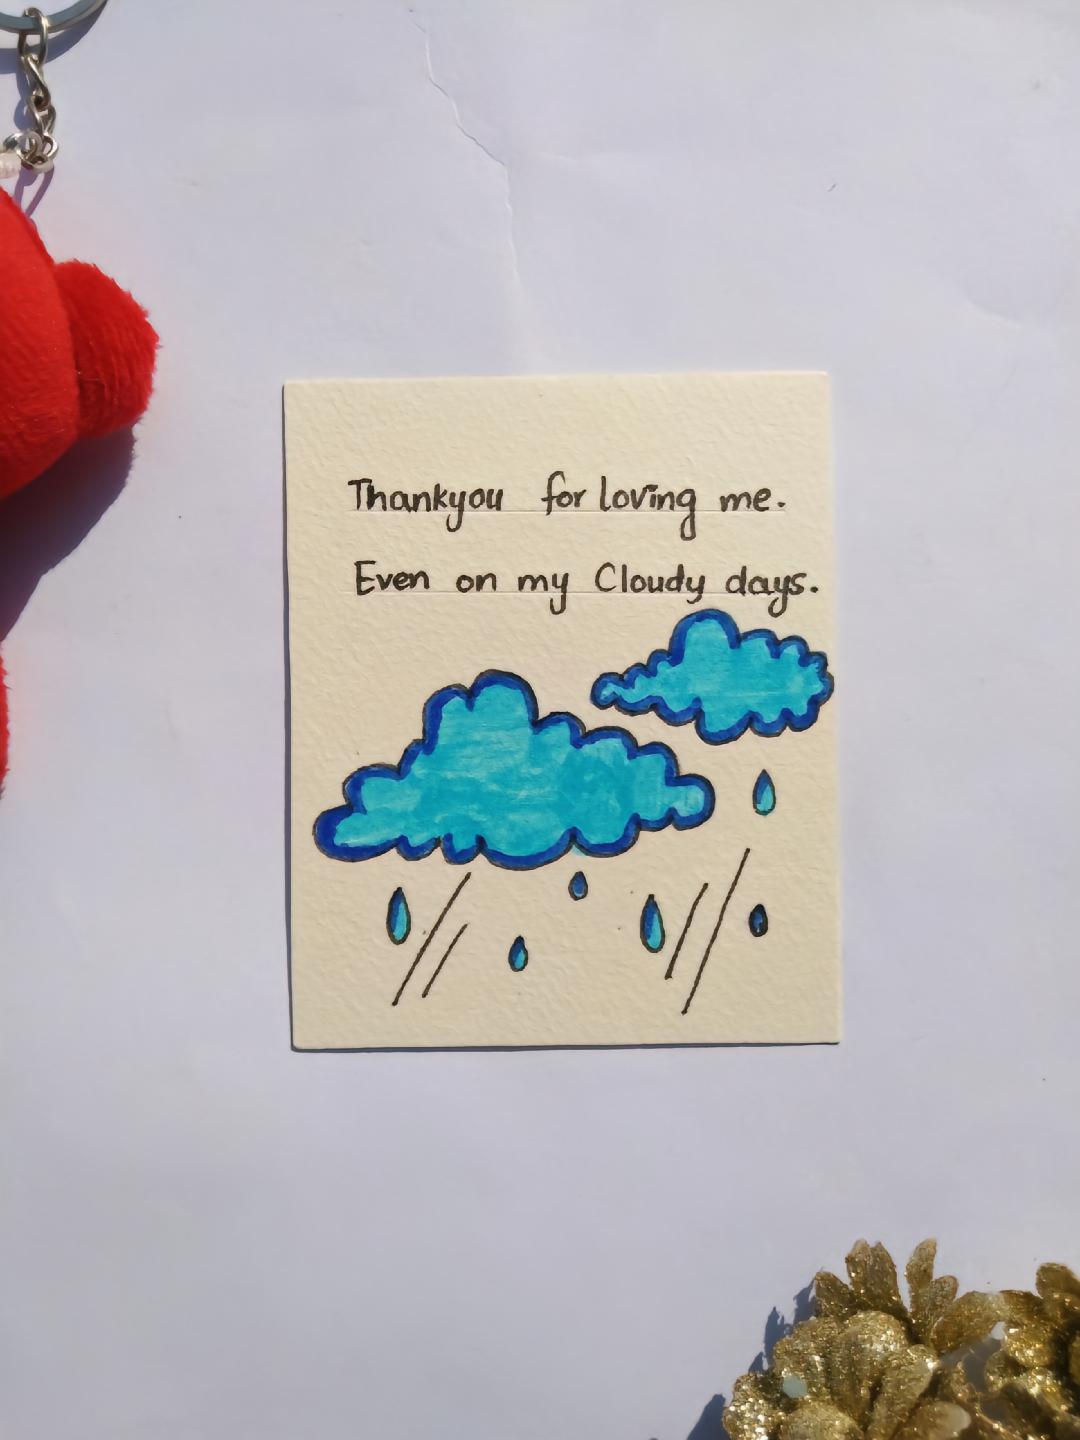 Thankyou for loving me.
Even on my Cloudy days.